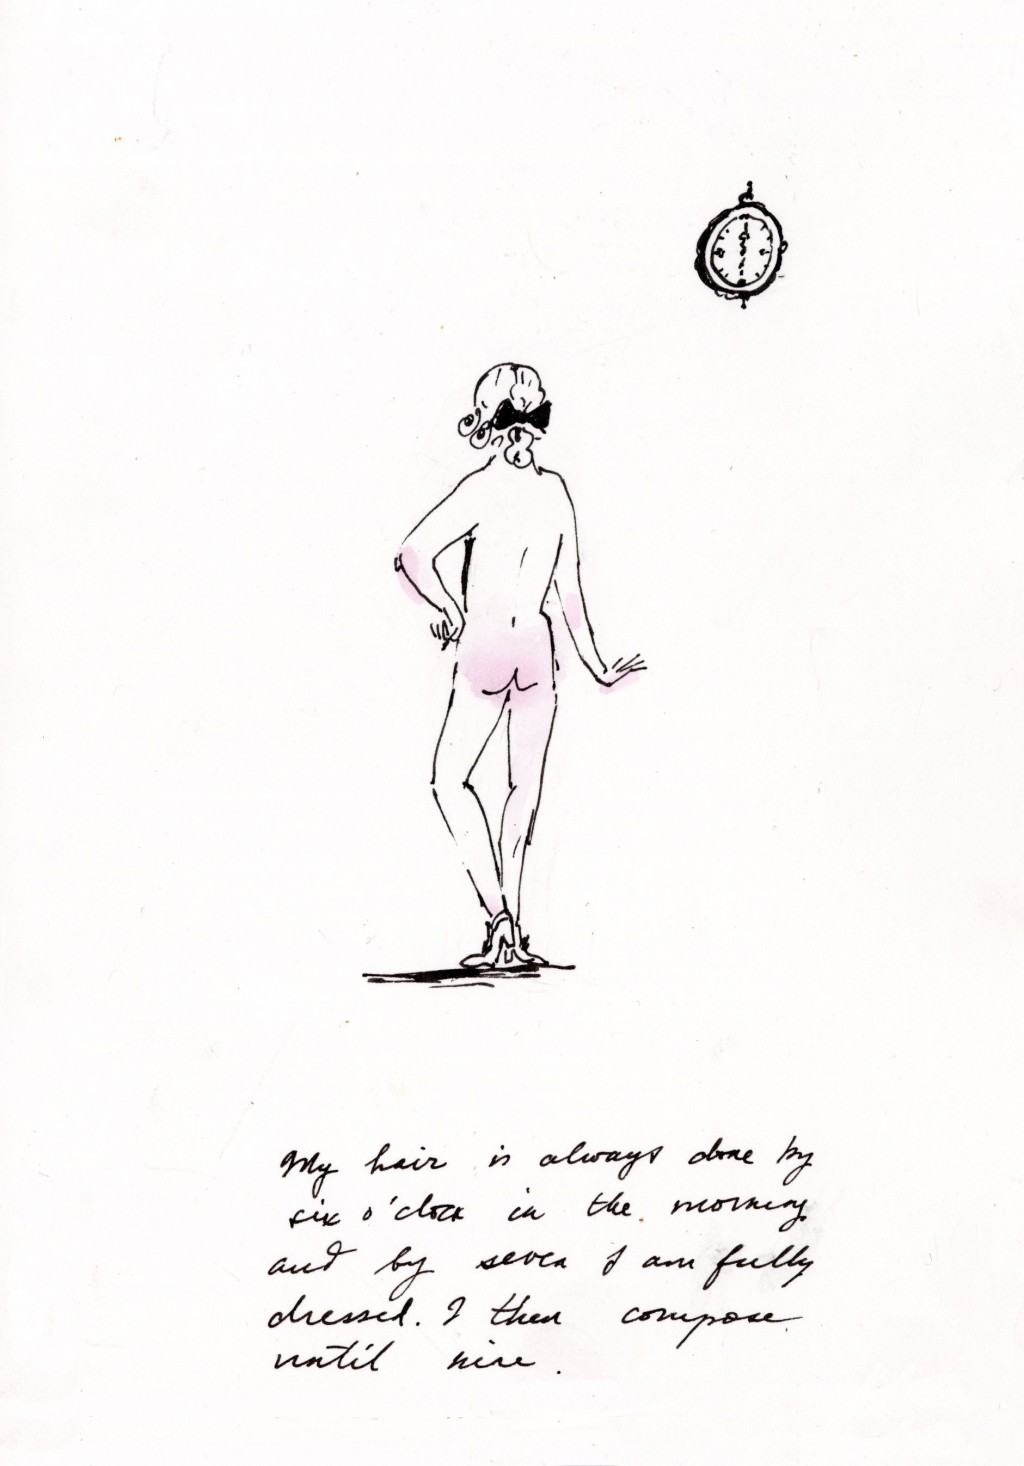 My hair is always done by
six o'clock in the morning
and by seven I am fully
dressed. I then compose
until nine.